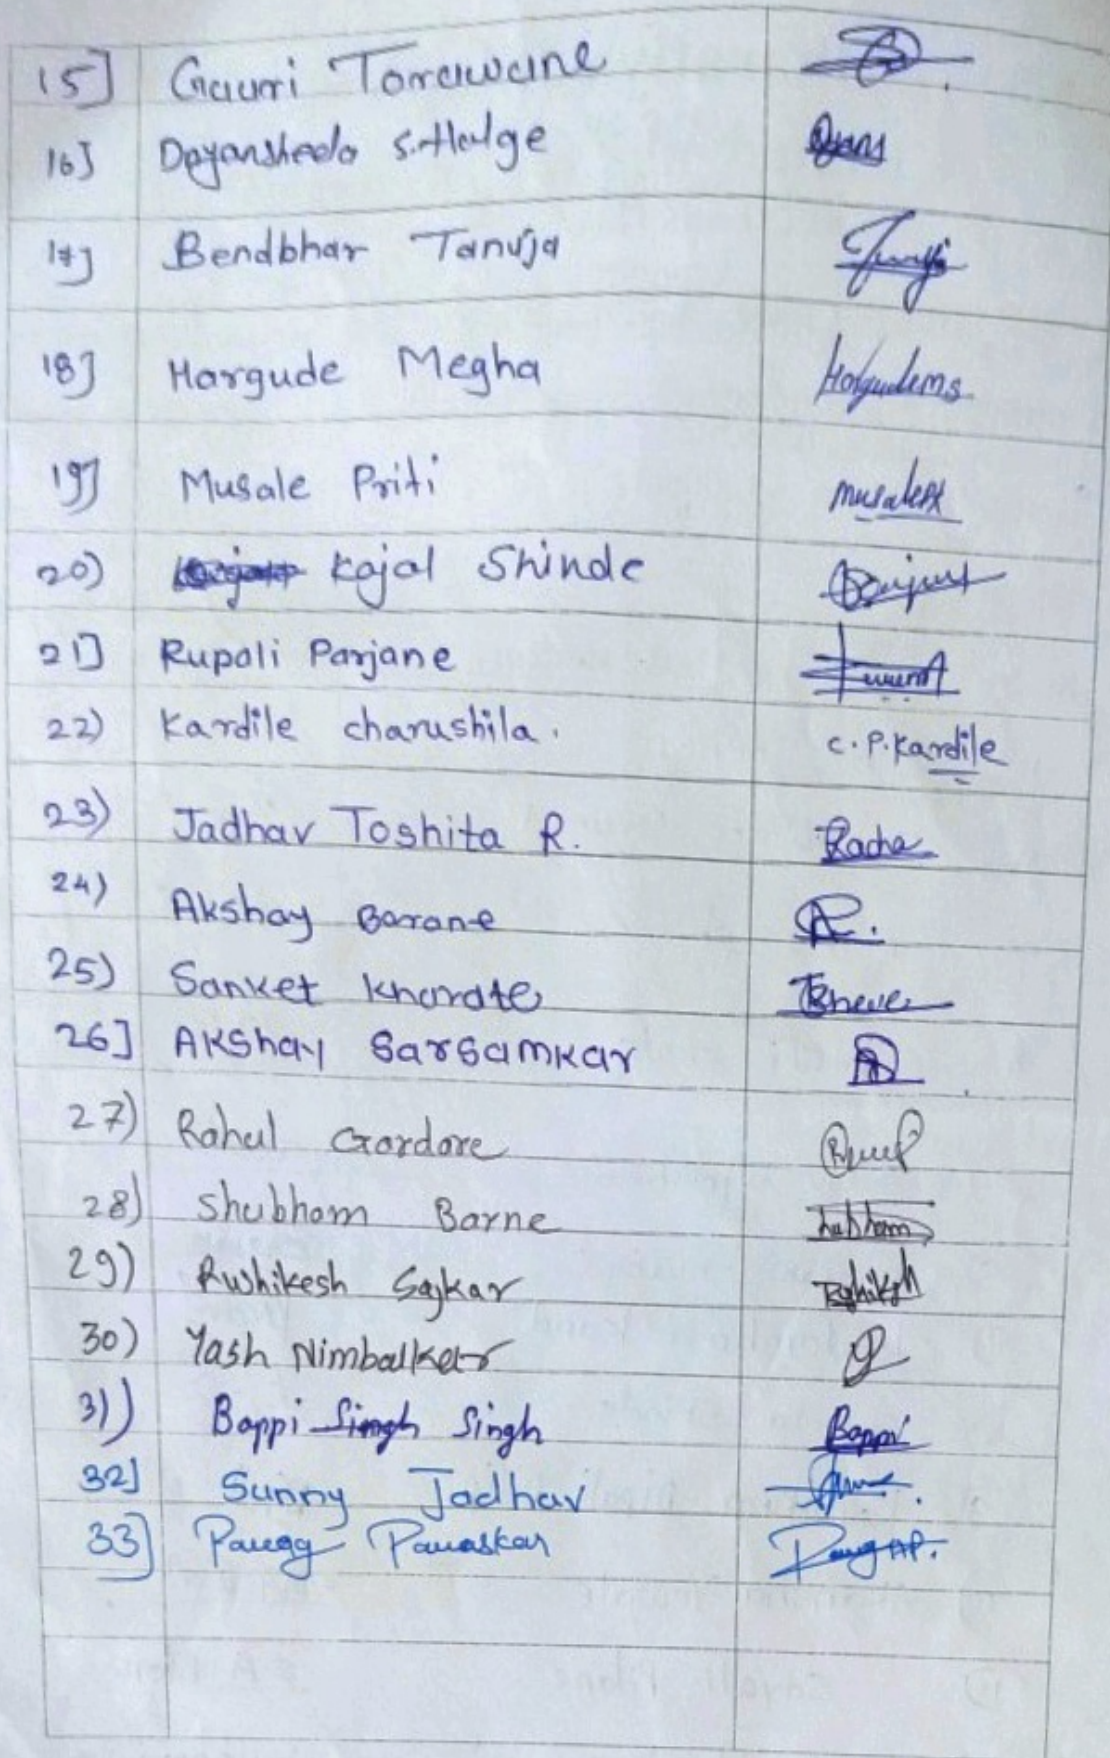 15] Gauri Torawane
16] Dnyansheela S. Halge
17] Bendbhar Tanuja
18] Hargude Megha Hargudems
19] Musale Priti musalepr
20) Kajal Shinde
21] Rupali Parjane
22) Kardile charushila. C.P.Kardile
23) Jadhav Toshita R.
24) Akshay Barane
25) Sanket Kharate
26] Akshay Sarsamkar
27) Rahul Gardare
28) Shubham Barne
29) Rushikesh Sajkar
30) Yash Nimbalkar
31) Bappi Singh Singh Bappi
32] Sunny Jadhav
33] Panaskar